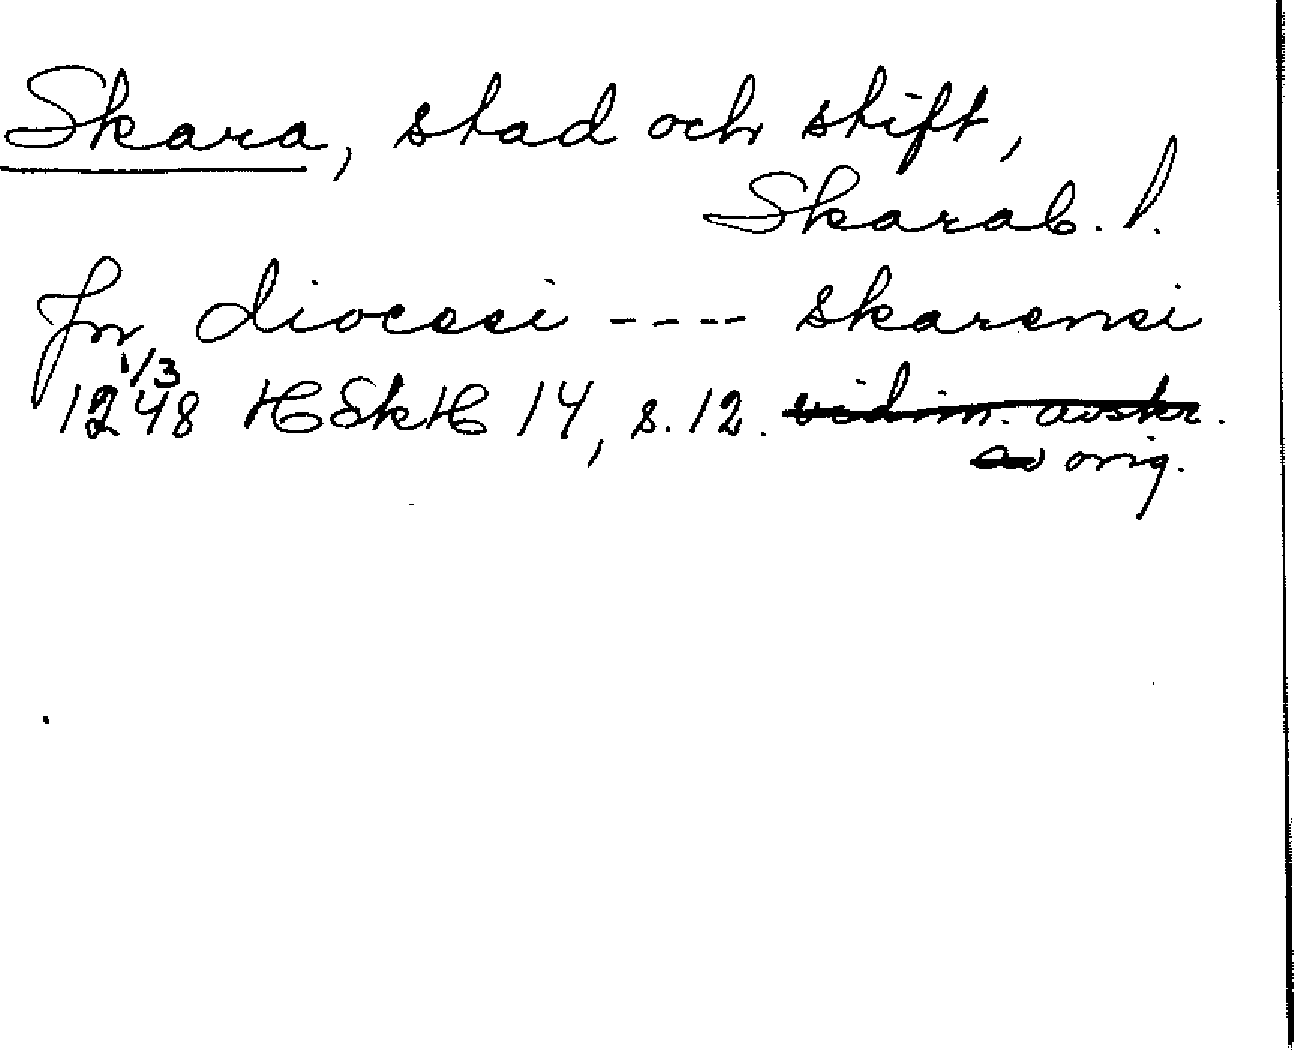 Skara, stad och stift,
Skarab. l.
Jn diocesi ---- skarensi
1/3
1248 HSkH 14, s. 12. vidim. avskr.
av orig.